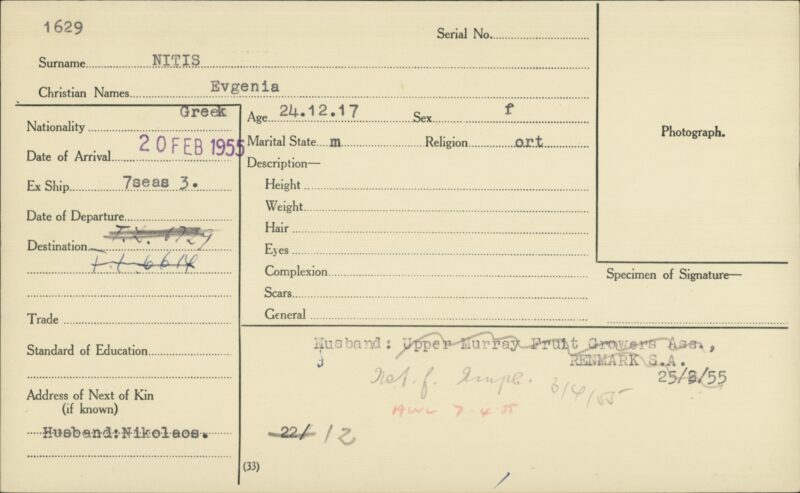 1629
Serial No.
Surname NITIS
Christian Names Evgenia
Nationality Greek
Age 24.12.17 Sex f
Date of Arrival 20 FEB 1955
Marital State m Religion ort
Ex Ship 7seas 3.
Description—
Height
Weight
Hair
Eyes
Complexion
Scars
General
Date of Departure
Destination T.L. 6729
T.L. 6614
Trade
Standard of Education
Address of Next of Kin
(if known)
Husband:Nikolaos.
Photograph.
Specimen of Signature—
Husband: Upper Murray Fruit Growers Ass.,
RENMARK S.A.
25/3/55
Ret. f. Empl. 3/4/55
AWL 7.4.55
22/ 12
(33)